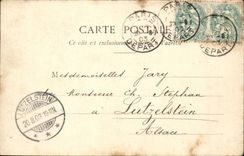 CARTE POSTALE
Ce côté est exclusivement
PARIS
DEPART
DEPART
Mesdemoiselles Jary
Monsieur Ch Stephan
à Lutzelstein
Alsace
LÜTZELSTEIN